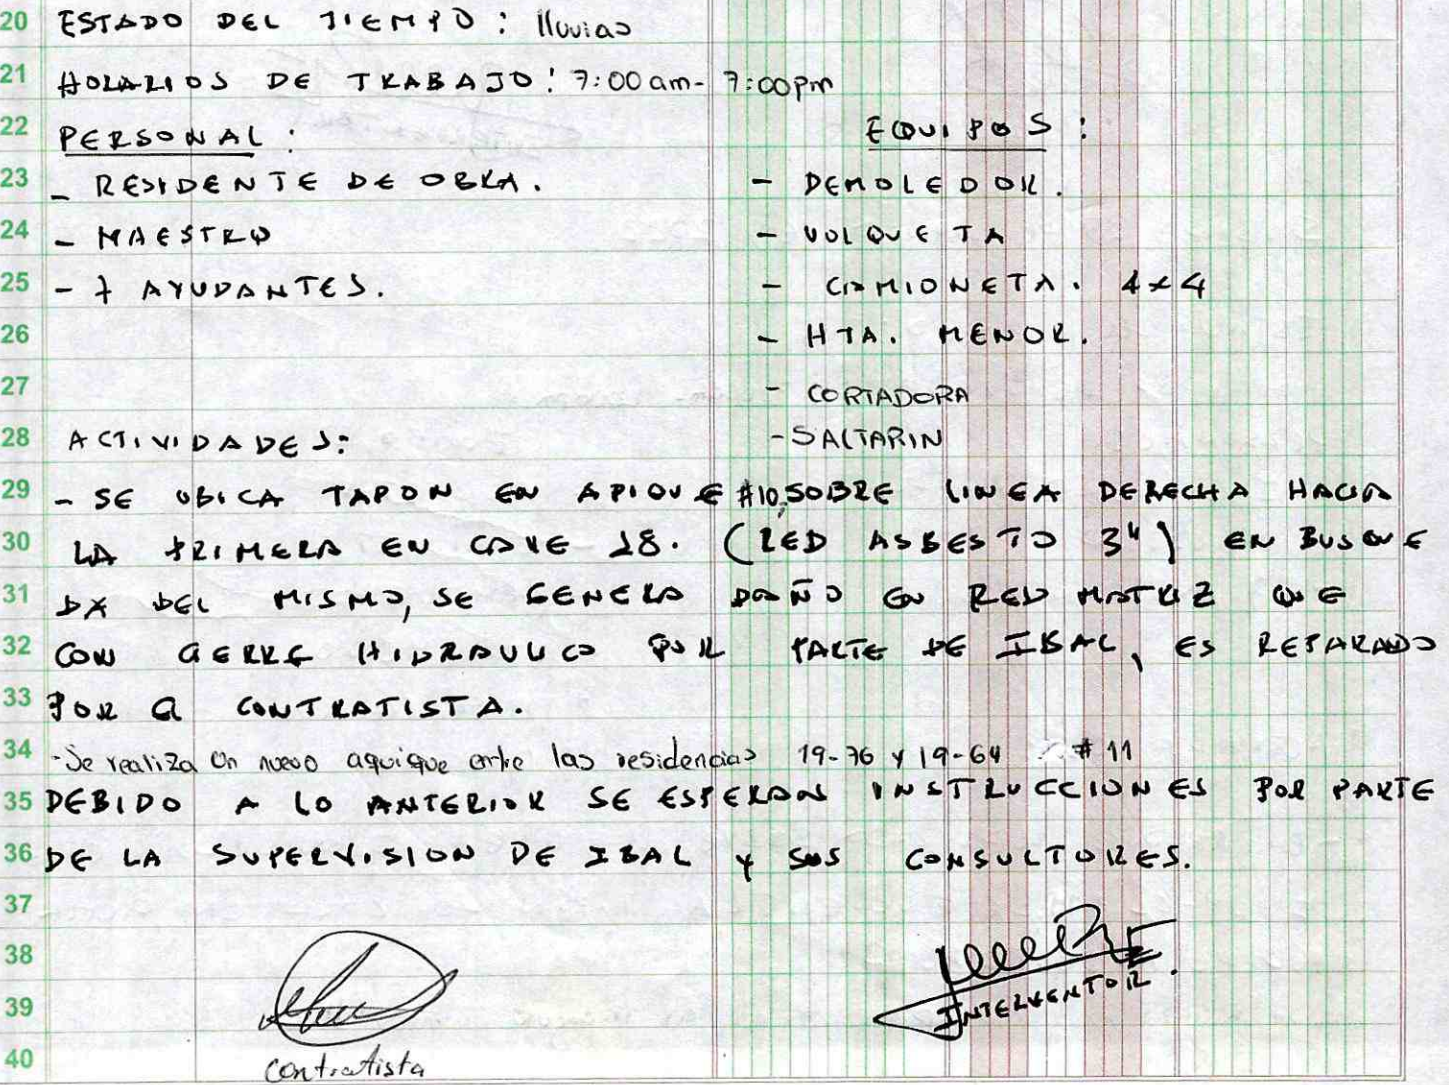 20 ESTADO DEL TIEMPO : lluvias
21 HORARIOS DE TRABAJO: 7:00 am- 7:00pm
22 PERSONAL : EQUIPOS :
23 - RESIDENTE DE OBRA. - DEMOLEDOR.
24 - MAESTRO - VOLQUETA
25 - 7 AYUDANTES. - CAMIONETA. 4x4
26 - HTA. MENOR.
27 - CORTADORA
28 ACTIVIDADES: - SALTARIN
29 - SE UBICA TAPON EN APIQUE #10, SOBRE LINEA DERECHA HACIA
30 LA PRIMERA EN CALLE 18. (RED ASBESTO 3") EN BUSQUE
31 DA DEL MISMO, SE GENERA DAÑO EN RED MATRIZ QUE
32 CON CIERRE HIDRAULICO POR PARTE DE IBAL, ES REPARADO
33 POR El CONTRATISTA.
34 -Se realiza un nuevo aquique entre las residencias 19-76 y 19-64 #11
35 DEBIDO A LO ANTERIOR SE ESPERAN INSTRUCCIONES POR PARTE
36 DE LA SUPERVISION DE IBAL Y SUS CONSULTORES.
37
38
39 INTERVENTOR.
40 Contratista